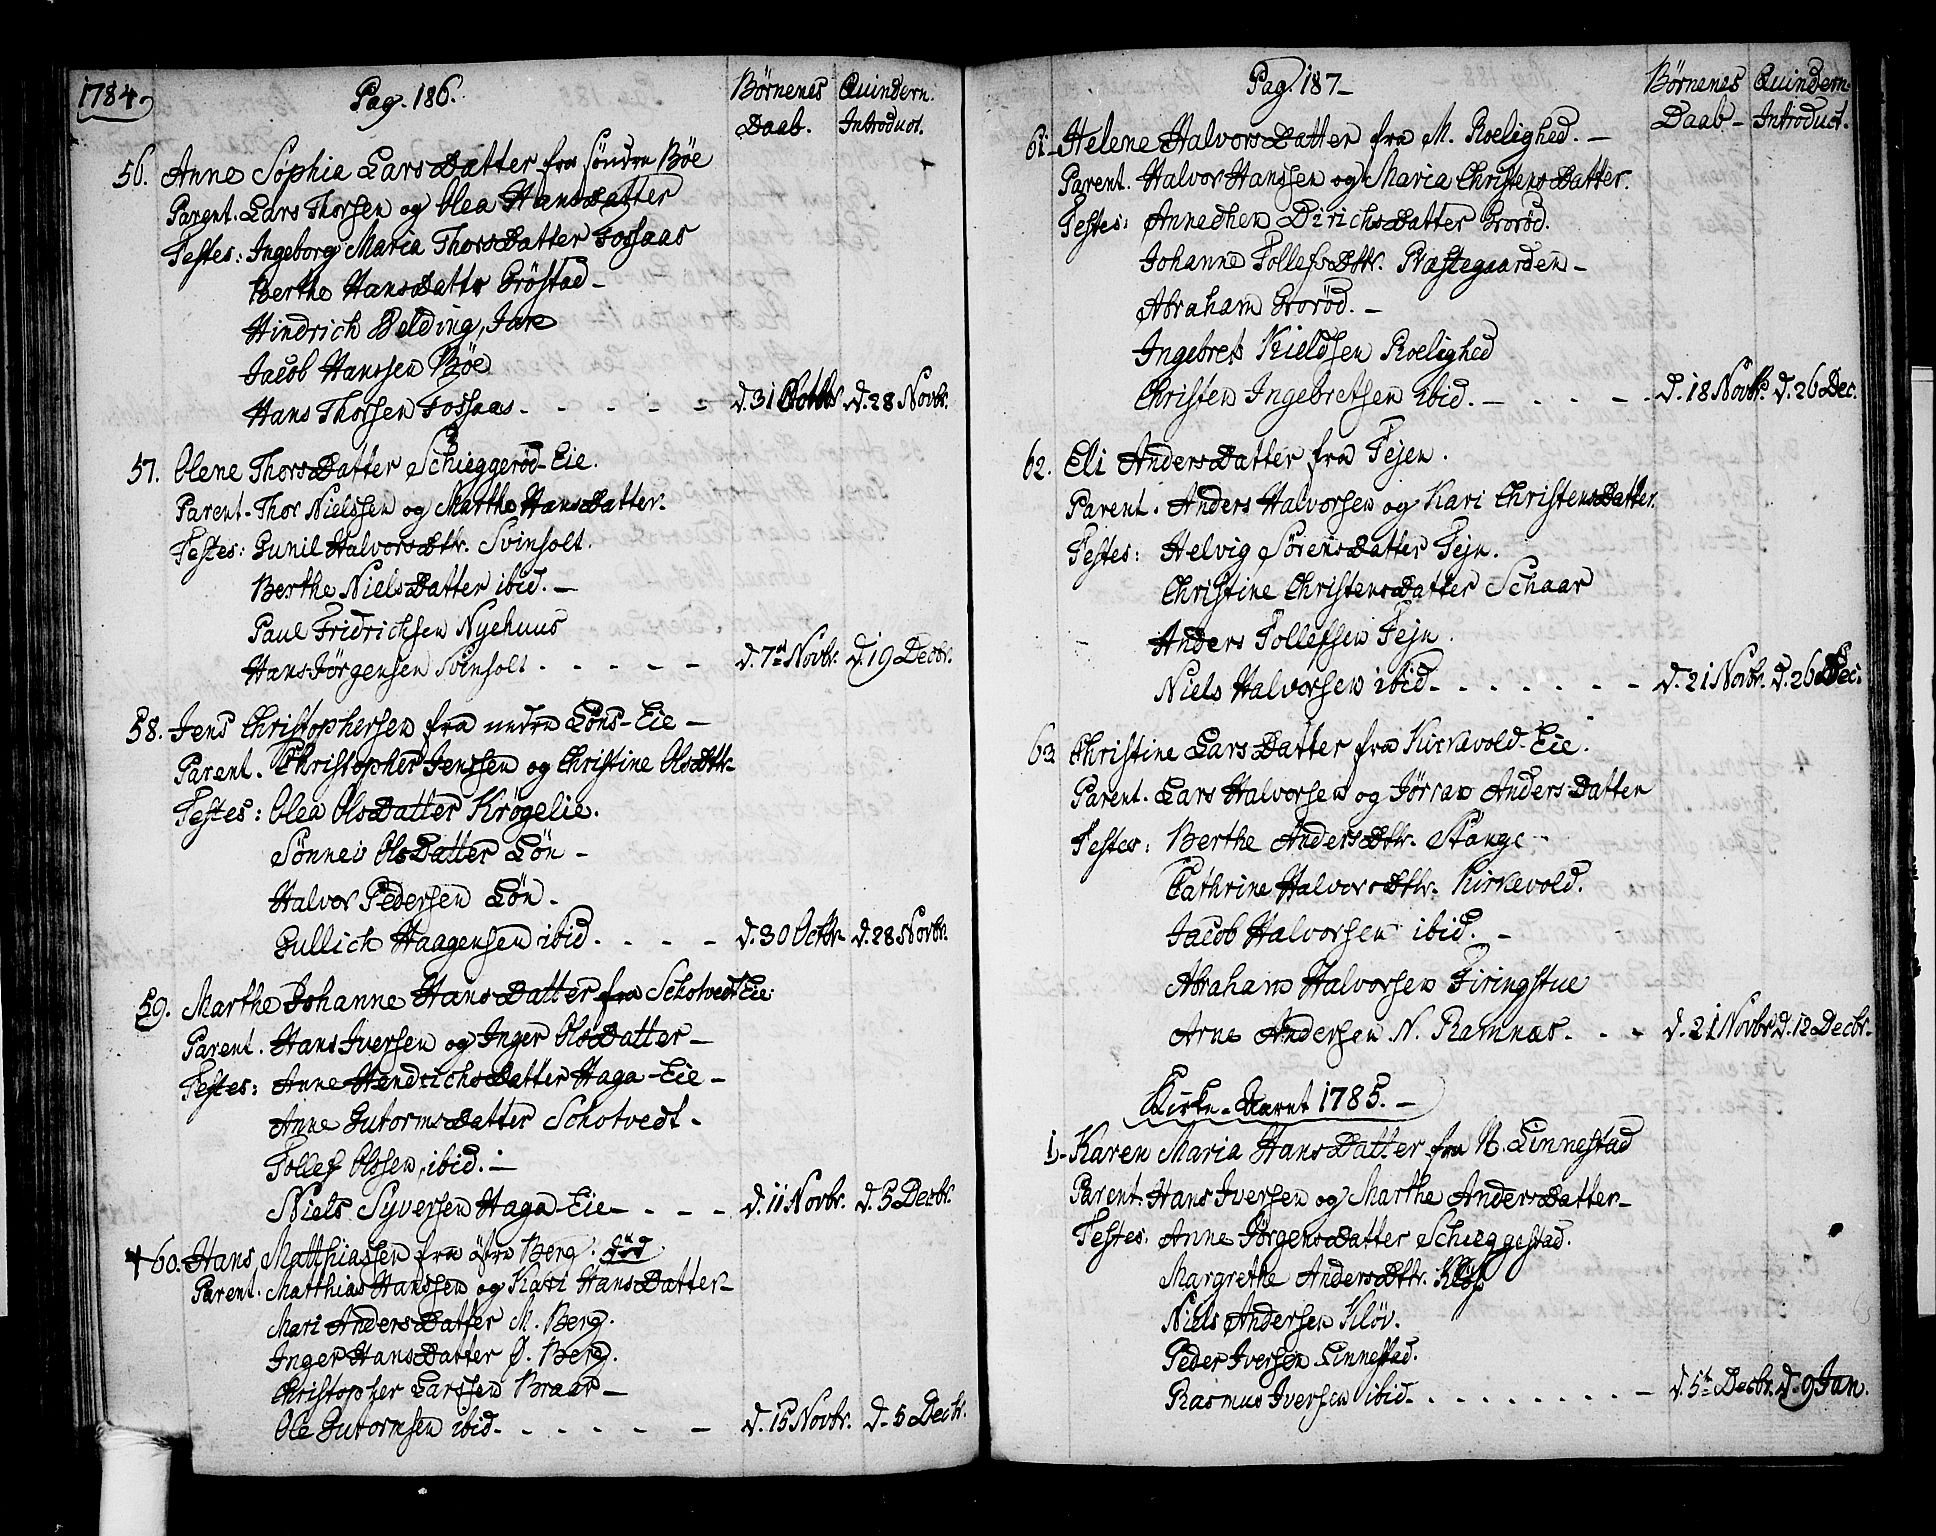 1784.
Pag. 186.
Börnenes Daab.
Quindern. Introduct.
56. Anne Sophia Lars Datter fra Söndre Böe
Parent. Lars Thorsen og Olea Hans Datter
Testes: Ingeborg Maria Thors Datter Fossaas
Berthe Hans Datter Gröstad -
Hindrich Belding, Jare
Jacob Hanssen Böe
Hans Thorsen Fossaas - - - - - d. 31 Octbr. d. 28 Novbr.
57. Olene Thors Datter Schieggeröd-Eie.
Parent. Thor Nielssen og Marthe Hans Datter.
Testes: Gunil Halvors Dttr. Svinholt.
Berthe Niels Datter ibid. -
Paul Fridrichsen Nyehuus
Hans Jörgensen Svinholt - - - - - d. 7de Novbr. d. 19 Decbr.
58. Jens Christophersen fra nedre Löns-Eie -
Parent. Christopher Jenssen og Christine Ols Dttr.
Testes: Olea Ols Datter Krögelie.
Sönnei Ols Datter Lön -
Halvor Pedersen Lön.
Gullich Haagensen ibid. - - - - d. 30 Octbr. d. 28 Novbr.
59. Marthe Johanne Hans Datter fra Schotvedt Eie.
Parent. Hans Iversen og Inger Ols Datter -
Testes: Anne Hendrichs Datter Haga-Eie -
Anne Gutorms Datter Schotvedt -
Tollef Olssen, ibid. -
Niels Syversen Haga-Eie - - - - d. 11 Novbr. d. 5 Decbr.
+ 60. Hans Matthiassen fra östre Berg. död
Parent. Matthias Hanssen og Kari Hans Datter -
Mari Anders Datter M. Berg.
Inger Hans Datter Ö. Berg.
Christopher Larssen Braar -
Ole Gutormsen ibid. - - - - - d. 15 Novbr. d. 5 Decbr.
Pag. 187 -
Börnenes Daab -
Quindern. Introduct.
61. Helene Halvors Datter fra M. Roelighed. -
Parent. Halvor Hanssen og Maria Christens Datter.
Testes: Annedhen Dirichs Datter Goröd.
Johanne Tollefs Dttr. Præstegaarden -
Abraham Goröd. -
Ingebret Kieldsen Roelighed
Christen Ingebretsen ibid. - - - - d. 18 Novbr. d. 26 Dec.
62. Eli Anders Datter fra Fejen.
Parent. Anders Halvorsen og Kari Christens Datter.
Testes: Helvig Sörens Datter Fejn.
Christine Christens Datter Schaar
Anders Tollefsen Fejn.
Niels Halvorsen ibid. - - - - - - d. 21 Novbr. d. 26 Dec.
63 Christine Lars Datter fra Kirkevold-Eie.
Parent. Lars Halvorsen og Jörran Anders Datter
Testes: Berthe Anders Dttr. Stange -
Cathrine Halvors Dttr. Kirkevold.
Jacob Halvorsen ibid. -
Abraham Halvorsen Firingstue
Arne Andersen N. Ramnæs. - - d. 21 Novbr. d. 12 Decbr.
Kirke-Aaret 1785. -
1. Karen Maria Hans Datter fra N. Linnestad
Parent. Hans Iversen og Marthe Anders Datter -
Testes: Anne Jörgens Datter Schieggestad.
Margrethe Anders Dttr. Klöf
Niels Andersen Klöv.
Peder Iversen Linnestad.
Rasmus Iversen ibid. - - - - - - - d. 5te Decbr. d. 9 Jan.